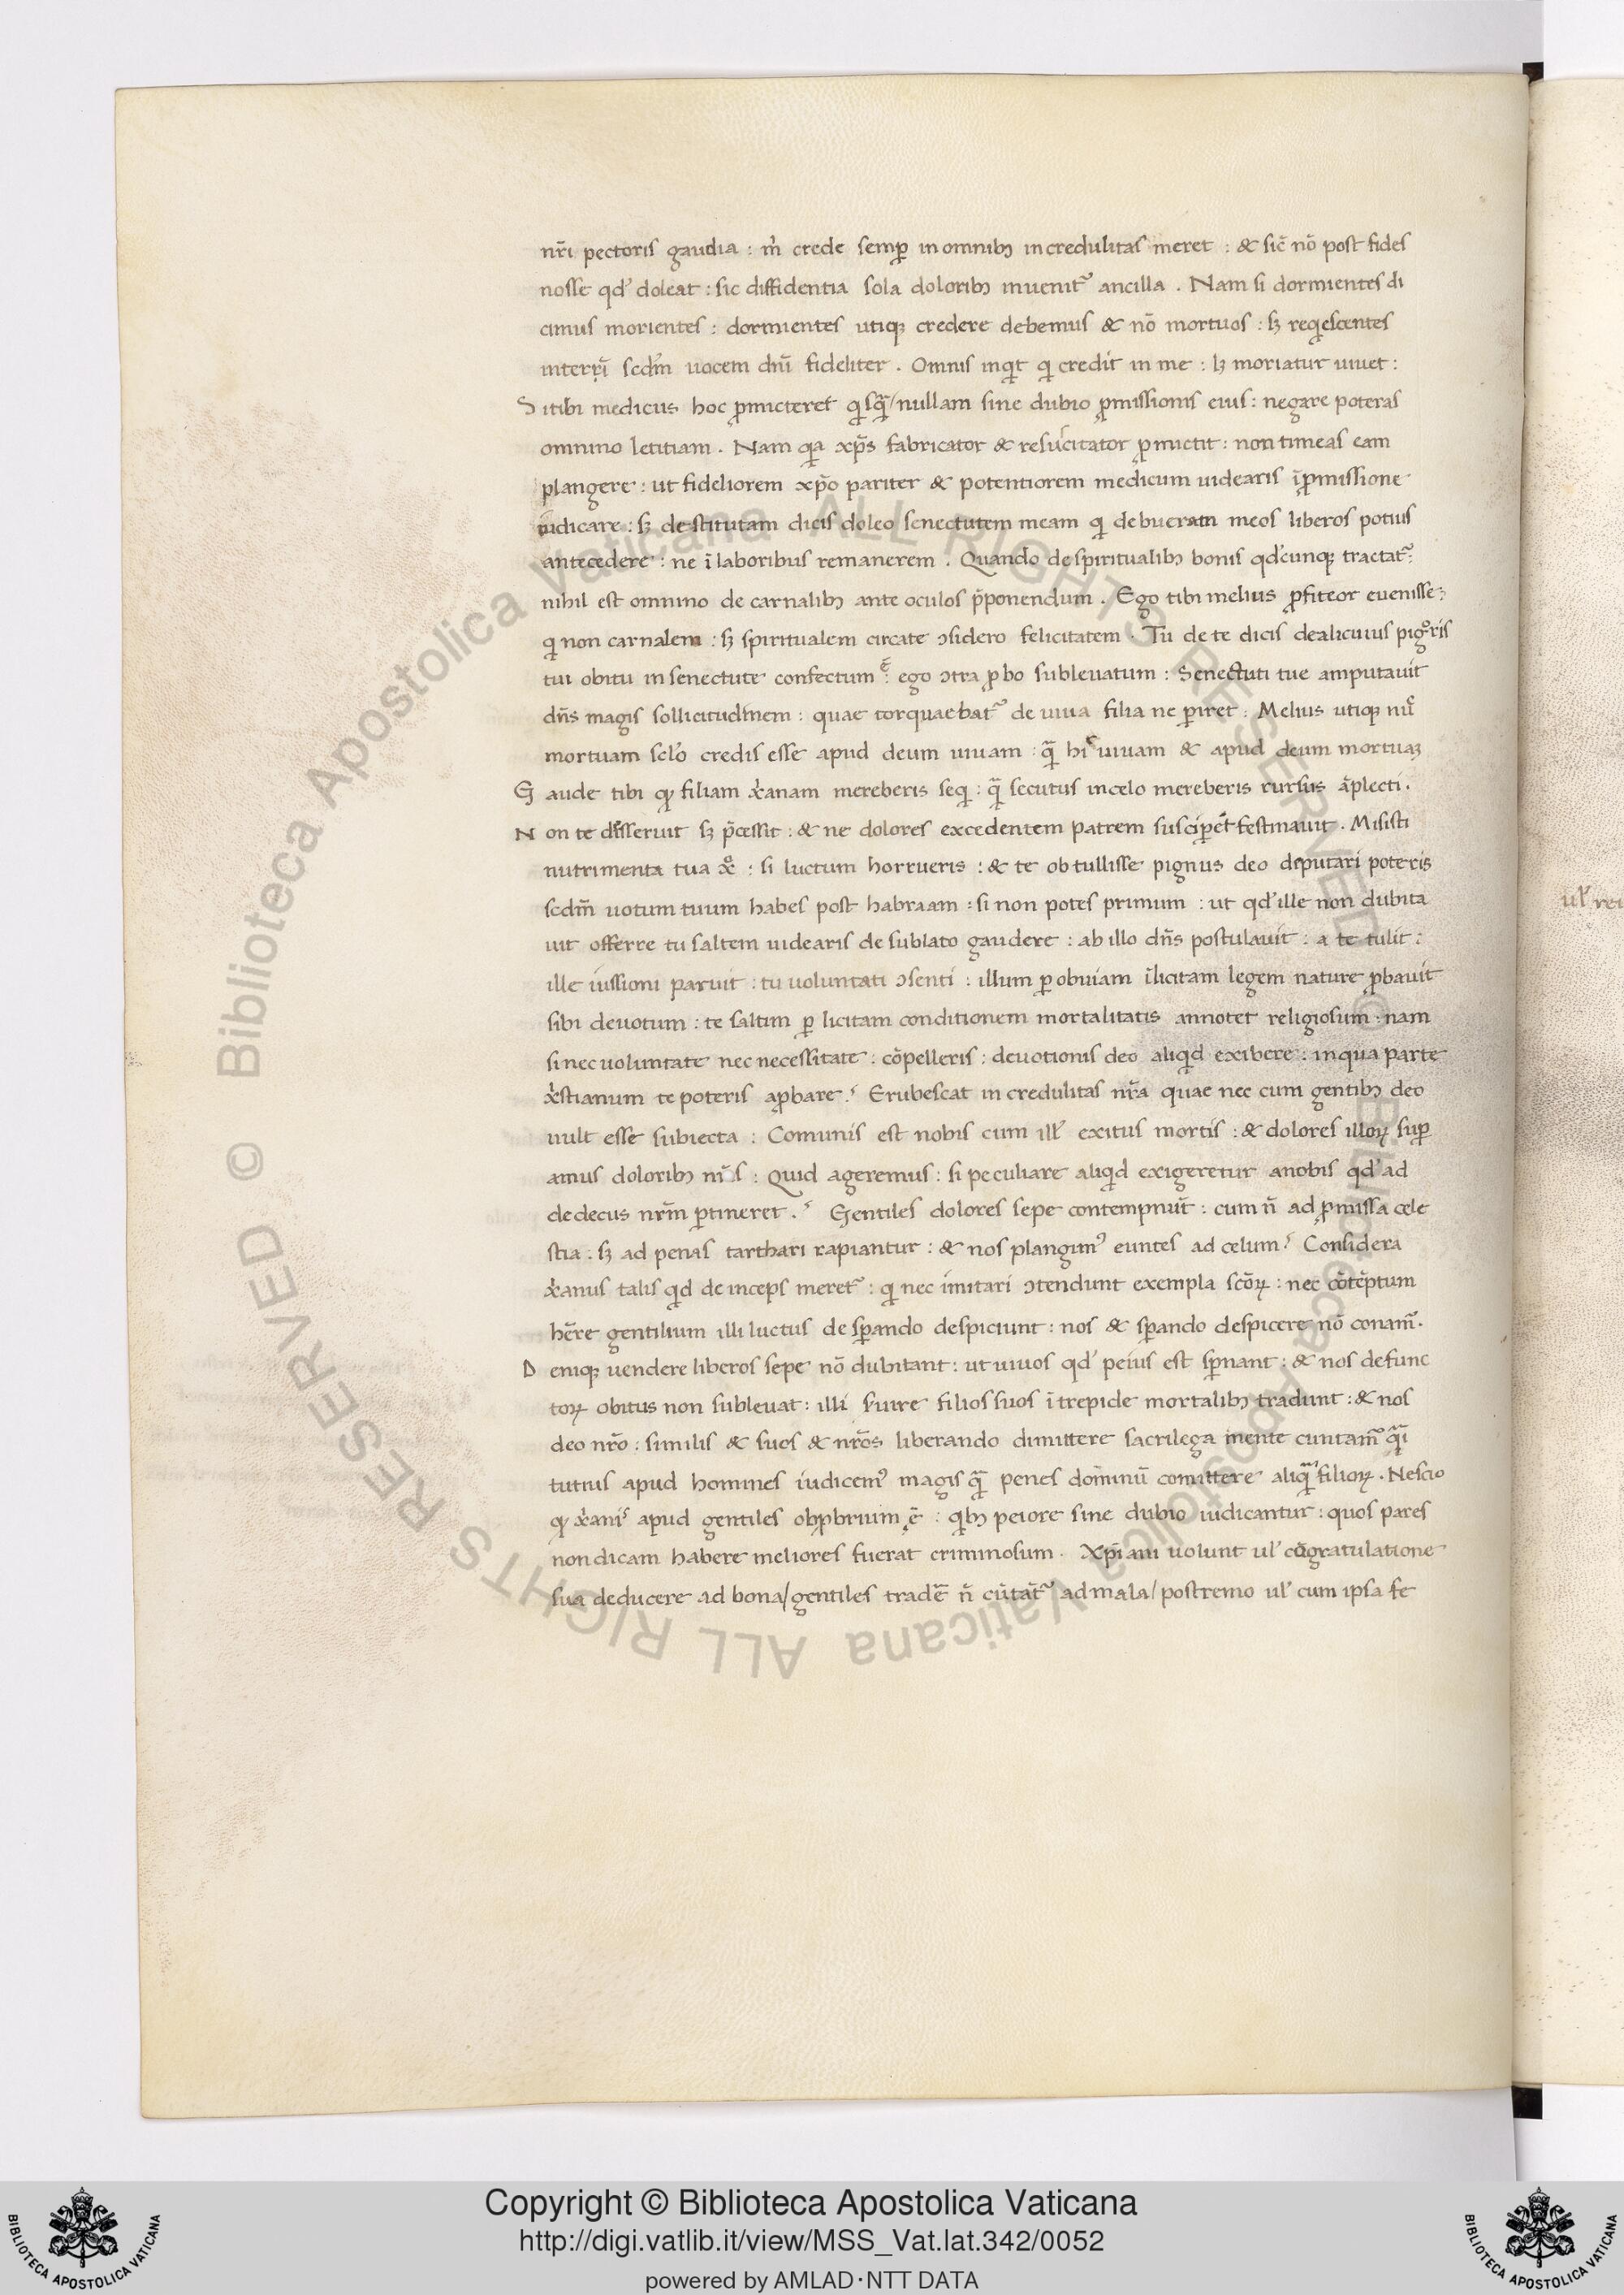 nr̄i pectoris gaudia : m̓ crede semꝑ in omnibꝫ incredulitas meret : & sic̄ nō post fides
nosse qd̓ doleat : sic diffidentia sola doloribꝫ inuenit᷑ ancilla . Nam si dormientes di
cimus morientes : dormientes utiqꝫ credere debemus & nō mortuos : sꝫ reqescentes
scdm̄ uocem dn̄i fideliter . Omnis inqͥt qͥ credit in me : lꝫ moriatur uiuet :
S i tibi medicus hoc ꝓmicteret qͥsqᷓ / nullam sine dubio ꝓmissionis eius : negare poteras
omnino letitiam . Nam qͥa xp̄s fabricator & resuscitator ꝓmictit : non timeas eam
plangere : ut fideliorem xp̄o pariter & potentiorem medicum uidearis īꝓmissione
iudicare : sꝫ destitutam dicis doleo senectutem meam qͥ debueram meos liberos potius
antecedere : ne ī laboribus remanerem . Quando de spiritualibꝫ bonis qd̓cunqꝫ tractat᷑ :
nihil est omnino de carnalibꝫ ante oculos p̄ponendum . Ego tibi melius ꝓfiteor euenisse :
qͥ non carnalem : sꝫ spiritualem circa te ↄsidero felicitatem . Tu de te dicis de alicuius pigͦris
tui obitu in senectute confectum ē : ego ↄtra ꝓbo subleuatum : Senectuti tue amputauit
dn̄s magis sollicitudinem : quae torquaebat᷑ de uiua filia ne ꝑiret . Melius utiqꝫ
mortuam sclo̓ credis esse apud deum uiuam : qᷓ hic uiuam & apud deum mortuaꝫ
G aude tibi qꝫ filiam x̓anam mereberis seqͥ : qᷓ secutus in celo mereberis rursus āplecti .
N on te disseruit sꝫ p̄cessit : & ne dolores excedentem patrem susciperet festinauit . Misisti
nutrimenta tua xͦ : si luctum horrueris : & te obtullisse pignus deo deputari poteris
scdm̄ uotum tuum habes post habraam : si non potes primum : ut qd̓ ille non dubita
uit offerre tu saltem uidearis de sublato gaudere : ab illo dn̄s postulauit : a te tulit :
ille iussioni paruit : tu uoluntati ↄsenti : illum ꝑ obuiam īlicitam legem nature ꝓbauit
sibi deuotum : te saltim ꝑ licitam conditionem mortalitatis annotet religiosum . nam
si nec uoluntate nec necessitate : cōpelleris : deuotionis deo aliqͥd exibere : in qua parte
x̓stianum te poteris aꝓbare ? Erubescat incredulitas nr̄a quae nec cum gentibꝫ deo
uult esse subiecta : Comunis est nobis cum ill̓ exitus mortis : & dolores illoꝝ suꝑ
amus doloribꝫ nr̄s : Quid ageremus : si peculiare aliqͥd exigeretur a nobis qd̓ ad
dedecus nr̄m ꝑtineret . ? Gentiles dolores sepe contempnūt : cum n̄ ad ꝓmissa cele
stia : sꝫ ad penas tarthari rapiantur : & nos plangimꝰ euntes ad celum ? Considera
x̓anus talis qͥd deinceps meret᷑ : qͥ nec imitari ↄtendunt exempla scōꝝ : nec cōtēptum
hēre gentilium illi luctus desꝑando despiciunt : nos & sꝑando despicere nō conam᷑ .
D eniqꝫ uendere liberos sepe nō dubitant : ut uiuos qd̓ peius est sꝑnant : & nos defunc
toꝝ obitus non subleuat : illi filios suos ītrepide mortalibꝫ tradunt : & nos
deo nr̄o : similis & suos & nr̄os liberando dimittere sacrilega mente cuntam᷑
tutius apud homines iudicemꝰ magis qᷓ penes dominū comittere aliqᷓ filioꝝ . Nescio
qꝫ x̓anis apud gentiles obꝓbrium ē : qͥbꝫ peiore sine dubio iudicantur : quos pares
non dicam habere meliores fuerat criminosum . Xp̄iani uolunt ul̓ cōgratulatione
sua deducere ad bona / gentiles tradē n̄ cūtāt᷑ ad mala / postremo ul̓ cum ipsa fe
© Biblioteca Apostolica Vaticana ALL RIGHTS RESERVED © Biblioteca Apostolica Vaticana ALL RIGHTS RESERVED
Copyright © Biblioteca Apostolica Vaticana
http://digi.vatlib.it/view/MSS_Vat.lat.342/0052
powered by AMLAD·NTT DATA
BIBLIOTECA APOSTOLICA VATICANA
BIBLIOTECA APOSTOLICA VATICANA